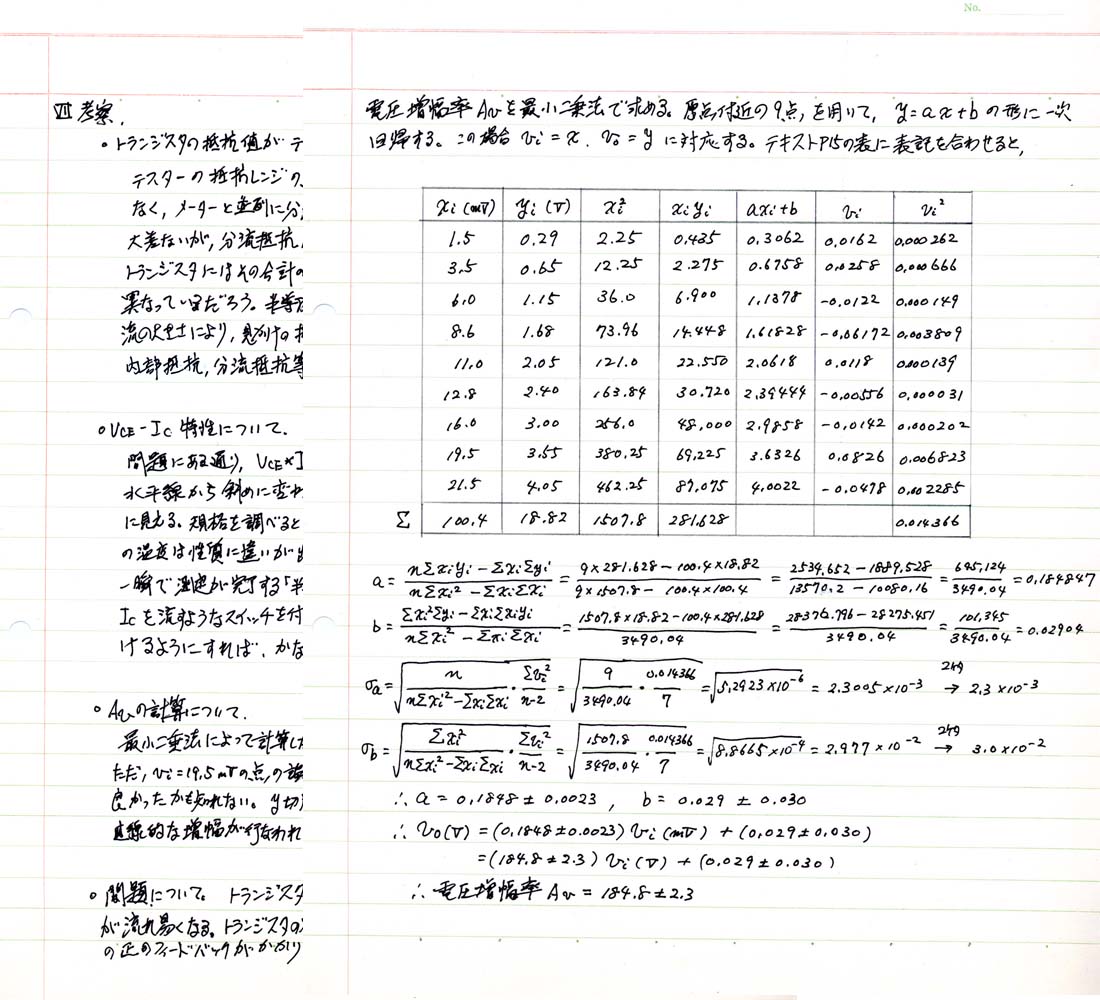 No.
VII 考察.
・トランジスタの抵抗値がテ
テスターの抵抗レンジの、
なく，メーターと並列に分
大差ないが，分流抵抗
トランジスタにはその合計の
異なっているだろう。半導
流の大きさにより，見かけの
内部抵抗，分流抵抗等
○VCE-Ic 特性について.
問題にある通り，VCE×I
水平線から斜めに変わ
に見える。規格を調べると
の温度は性質に違いが出
一瞬で測定が完了する「半
Icを流すようなスイッチを付
けるようにすれば，かな
○Avの計算について.
最小二乗法によって計算した
ただ，vi=19.5mVの点の誤
良かったかも知れない。y切
直線的な増幅が行なわれ
○問題について。 トランジスタ
が流れ易くなる。トランジスタの
の正のフィードバックがかかり
電圧増幅率Avを最小二乗法で求める。原点付近の9点，を用いて，y=ax+bの形に一次
回帰する。この場合 vi=x. vo=y に対応する。テキストP15の表に表記を合わせると，
xi (mV) yi (V) xi² xi yi axi+b vi vi²
1.5 0.29 2.25 0.435 0.3062 0.0162 0.000262
3.5 0.65 12.25 2.275 0.6758 0.0258 0.000666
6.0 1.15 36.0 6.900 1.1378 -0.0122 0.000149
8.6 1.68 73.96 14.448 1.61828 -0.06172 0.003809
11.0 2.05 121.0 22.550 2.0618 0.0118 0.000139
12.8 2.40 163.84 30.720 2.39444 -0.00556 0.000031
16.0 3.00 256.0 48.000 2.9858 -0.0142 0.000202
19.5 3.55 380.25 69.225 3.6326 0.0826 0.006823
21.5 4.05 462.25 87.075 4.0022 -0.0478 0.002285
Σ 100.4 18.82 1507.8 281.628 0.014366
a = (nΣxiyi - ΣxiΣyi)/(nΣxi² - ΣxiΣxi) = (9×281.628 - 100.4×18.82)/(9×1507.8 - 100.4×100.4) = (2534.652 - 1889.528)/(13570.2 - 10080.16) = 645.124/3490.04 = 0.184847
b = (Σxi²Σyi - ΣxiΣxiyi)/(nΣxi² - ΣxiΣxi) = (1507.8×18.82 - 100.4×281.628)/3490.04 = (28376.796 - 28275.451)/3490.04 = 101.345/3490.04 = 0.02904
σa = √(n/(nΣxi² - ΣxiΣxi)・Σvi²/(n-2)) = √(9/3490.04・0.014366/7) = √(5.2923×10⁻⁶) = 2.3005×10⁻³ 2ケタ → 2.3×10⁻³
σb = √(Σxi²/(nΣxi² - ΣxiΣxi)・Σvi²/(n-2)) = √(1507.8/3490.04・0.014366/7) = √(8.8665×10⁻⁴) = 2.977×10⁻² 2ケタ → 3.0×10⁻²
∴ a = 0.1848 ± 0.0023 , b = 0.029 ± 0.030
∴ vo(V) = (0.1848±0.0023) vi(mV) + (0.029±0.030)
= (184.8±2.3) vi(V) + (0.029±0.030)
∴ 電圧増幅率 Av = 184.8±2.3